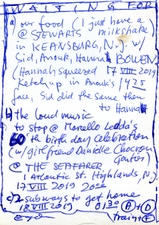 WAITING FOR
a) our food (I just have a
@ STEWARTS milkshake
in KEANSBURG, N.J. w/
Sid, Anouk, Hannah BOWEN
(Hannah squeezed 17 VIII 2019
Ketchup in Anouk's 1425
face, Sid did the same then
to Hannah
b) the loud music
to stop @ Marcello Ledda's
60th birthday celebration
(w/ girlfriend Danielle Chocron
@ THE SEAFARER
1 Atlantic St. Highlands, N.J.
17 VIII 2019 2022
c) 2 subways to get home
18 VIII 2019 0120
Train